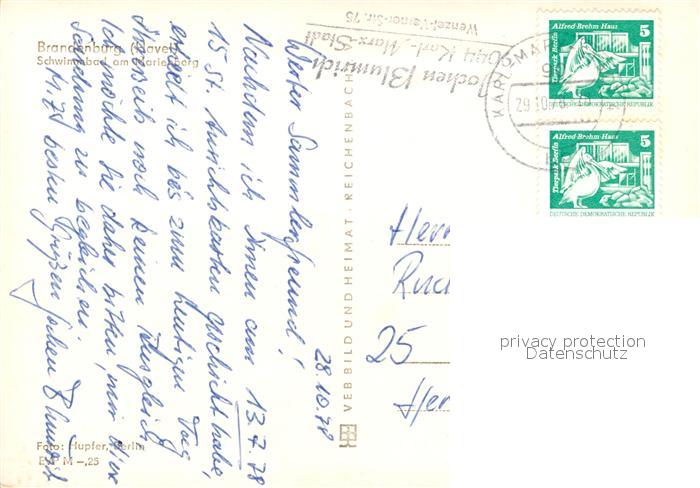 Brandenburg (Havel)
Schwimmbad am Marienberg
Jochen Blumrich
044 Karl-Marx-Stadt
Wenzel-Verner-Str. 75
28.10.78
Werter Sammlerfreund!
Nachdem ich Ihnen am 13.7.78
15 St. Ansichtskarten geschickt habe,
erhielt ich bis zum heutigen Tag
Ihrerseits noch keinen Ausgleich
Ich möchte Sie daher bitten, mir diese
Sendung zu begleichen.
M. beste Grüßen Jochen Blumrich
Foto: Hupfer, Berlin
EVP M –,25
VEB BILD UND HEIMAT · REICHENBACH
KARL-MARX
29.10
Alfred-Brehm-Haus
5
Tierpark Berlin
DEUTSCHE DEMOKRATISCHE REPUBLIK
Alfred-Brehm-Haus
5
Tierpark Berlin
DEUTSCHE DEMOKRATISCHE REPUBLIK
Herr
25
privacy protection
Datenschutz